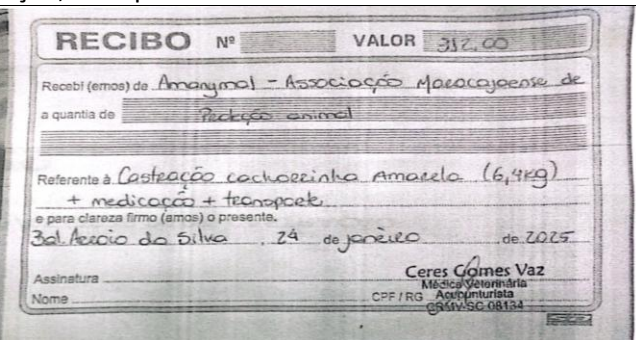 RECIBO Nº VALOR 312,00
Recebi (emos) de Amanymal - Associação Maracajaense de
a quantia de Proteção animal
Referente à Castração cachorrinha Amarela (6,4kg)
+ medicação + transporte
e para clareza firmo (amos) o presente.
Bal. Arroio do Silva, 24 de janeiro de 2025
Assinatura
Ceres Gomes Vaz
Médica Veterinária
Nome CPF / RG Acupunturista
CRMV-SC 08134